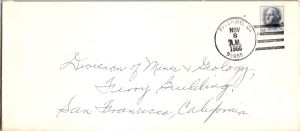 NOV
8
A.M.
1966
Division of Mines & Geology,
Ferry Building.
San Francisco, California